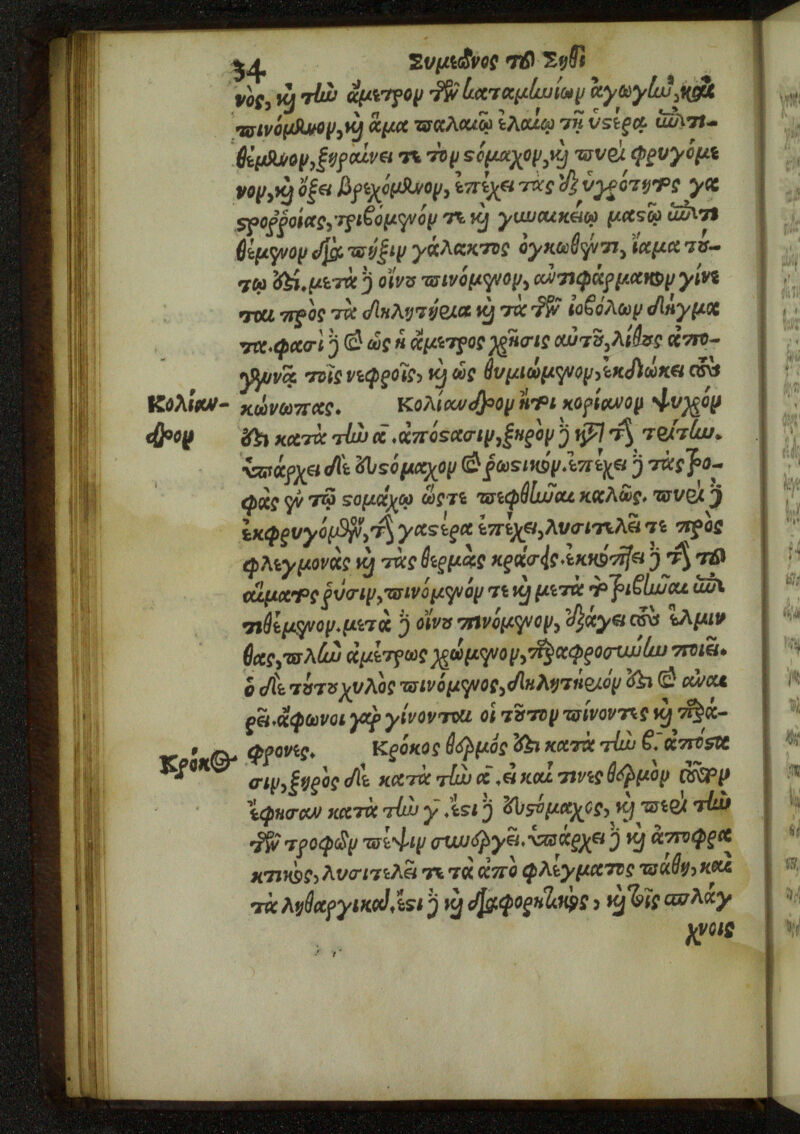 34 Συμεῶνος τοῦ Σηθὶ
νὸς, καὶ τὴν ἄμετρον τῶν καταμηνίων ἀγωγὴν, καὶ
πινόμενον, καὶ ἅμα παλαιῷ ἐλαίῳ τῇ ὑστέρᾳ ἐπιτι-
θέμενον, ξηραίνει τε τὸν στόμαχον, καὶ πυρὶ φρυγόμε
νον, καὶ ὄξει βρεχόμενον, ἐπέχει τὰς ἐξ ὑγρότητος γα
στρορροίας, τριβόμενόν τε καὶ γυναικείῳ μαστῷ ἐπιτι
θέμενον διὰ πῆξιν γάλακτος ὀγκωθέντι, ἴαμα τού-
τῳ ἐστί. μετὰ δὲ οἴνου πινόμενον, ἀντιφάρμακον γίνε
ται πρὸς τὰ δηλητήρια καὶ τὰ τῶν ἰοβόλων δήγμα
τα. φασὶ δὲ καὶ ὡς ἡ ἄμετρος χρῆσις αὐτοῦ, λίθους ἀπο-
γεννᾷ τοῖς νεφροῖς, καὶ ὡς θυμιώμενον, ἐκδιώκει τοὺς
Κολίαν- κώνωπας. Κολίανδρον ἤτοι κορίανον ψυχρόν
δρον ἐστι κατὰ τὴν α. ἀπόστασιν, ξηρὸν δὲ κατὰ τὴν τρίτην.
ὑπάρχει δὲ εὐστόμαχον καὶ ῥωστικόν. ἐπέχει δὲ τὰς τρο-
φὰς ἐν τῷ στομάχῳ ὥστε πεφθῆναι καλῶς. πυρὶ δὲ
ἐκφρυγόμενον, τὴν γαστέρα ἐπέχει, λυσιτελεῖ τε πρὸς
φλεγμονὰς καὶ τὰς θερμὰς κράσεις. ἐκκόπτει δὲ τὴν τοῦ
αἵματος ῥύσιν, πινόμενόν τε καὶ μετὰ τὸ τριβῆναι ἐπι
τιθέμενον. μετὰ δὲ οἴνου πινόμενον, ἐξάγει τοὺς ἕλμιν
θας, πλὴν ἀμέτρως χρώμενον, παραφροσύνην ποιεῖ.
ὁ δὲ τούτου χυλὸς πινόμενος, δηλητήριόν ἐστι καὶ ἀναι
ρεῖ. ἄφωνοι γὰρ γίνονται οἱ τοῦτον πίνοντες καὶ παρά-
Κρόκος φρονες. Κρόκος θερμός ἐστι κατὰ τὴν β. ἀπόστα
σιν, ξηρὸς δὲ κατὰ τὴν α. εἰ καί τινες θερμὸν αὐτὸν
ἔφησαν κατὰ τὴν γ. ἔστι δὲ εὐστόμαχος, καὶ περὶ τὴν
τῶν τροφῶν πέψιν συνεργεῖ. ὑπάρχει δὲ καὶ ἀποφρα
κτικὸς, λυσιτελεῖ τε τὰ ἀπὸ φλέγματος πάθη, καὶ
τὰ ληθαργικά. ἔστι δὲ καὶ διαφορητικὸς, καὶ τοῖς σπλάγ
χνοις